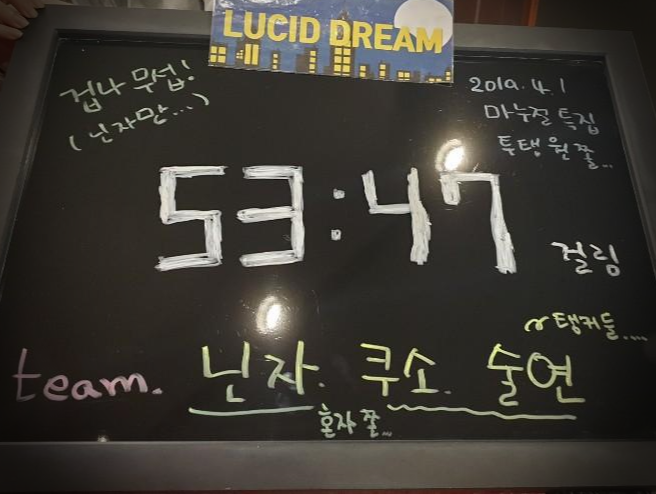 LUCID DREAM
겁나 무섭!
(닌자만...)
2019. 4. 1
마누절 특집
투탱 원쫄..
53:47
걸림
탱커들....
team. 닌자. 쿠소. 술연
혼자 쫄...